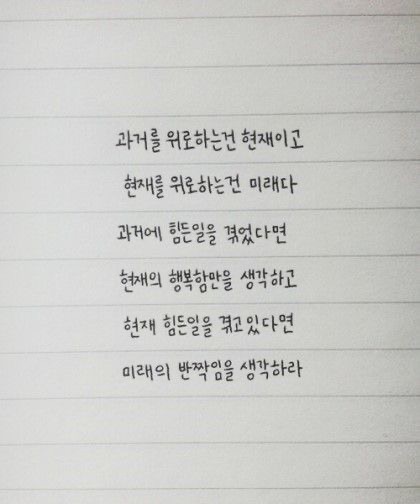 과거를 위로하는건 현재이고
현재를 위로하는건 미래다
과거에 힘든일을 겪었다면
현재의 행복함만을 생각하고
현재 힘든일을 겪고있다면
미래의 반짝임을 생각하라